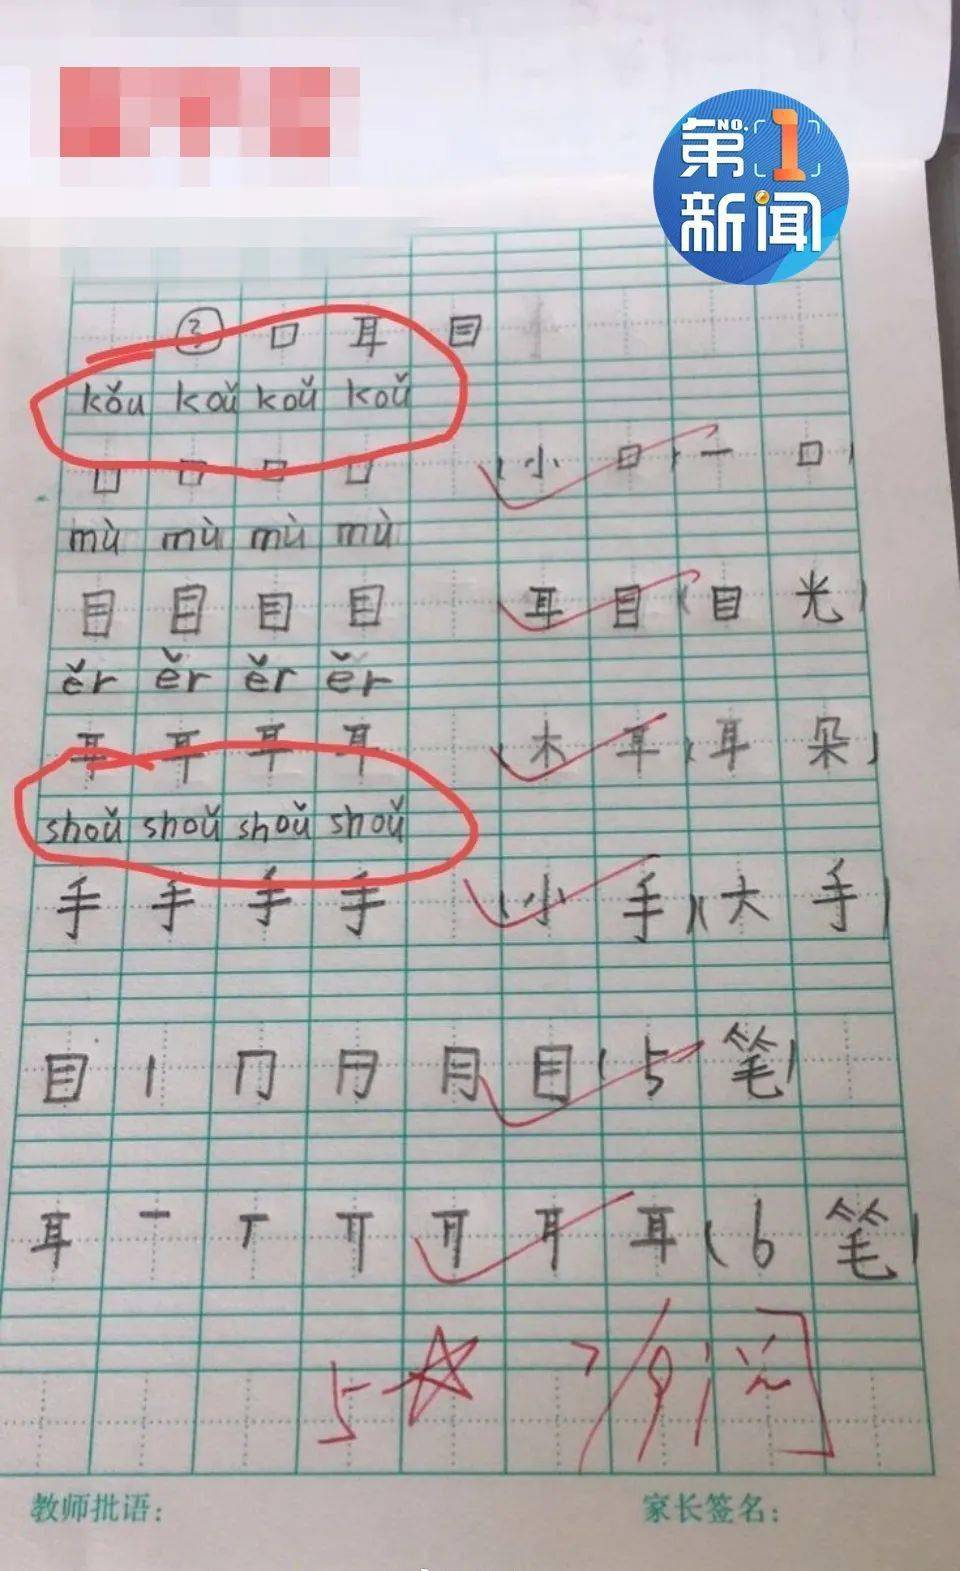 第1新闻
NO.
③ 口 耳 目
kǒu koǔ koǔ koǔ
口 口 口 口 (小 口)(一 口)
mù mù mù mù
目 目 目 目 (耳 目)(目 光)
ěr ěr ěr ěr
耳 耳 耳 耳 (木 耳)(耳 朵)
shoǔ shoǔ shoǔ shoǔ
手 手 手 手 (小 手)(大 手)
目 丨 冂 月 目 (5 笔)
耳 一 丅 耳 (6 笔)
5 ☆ 阅
教师批语: 家长签名: